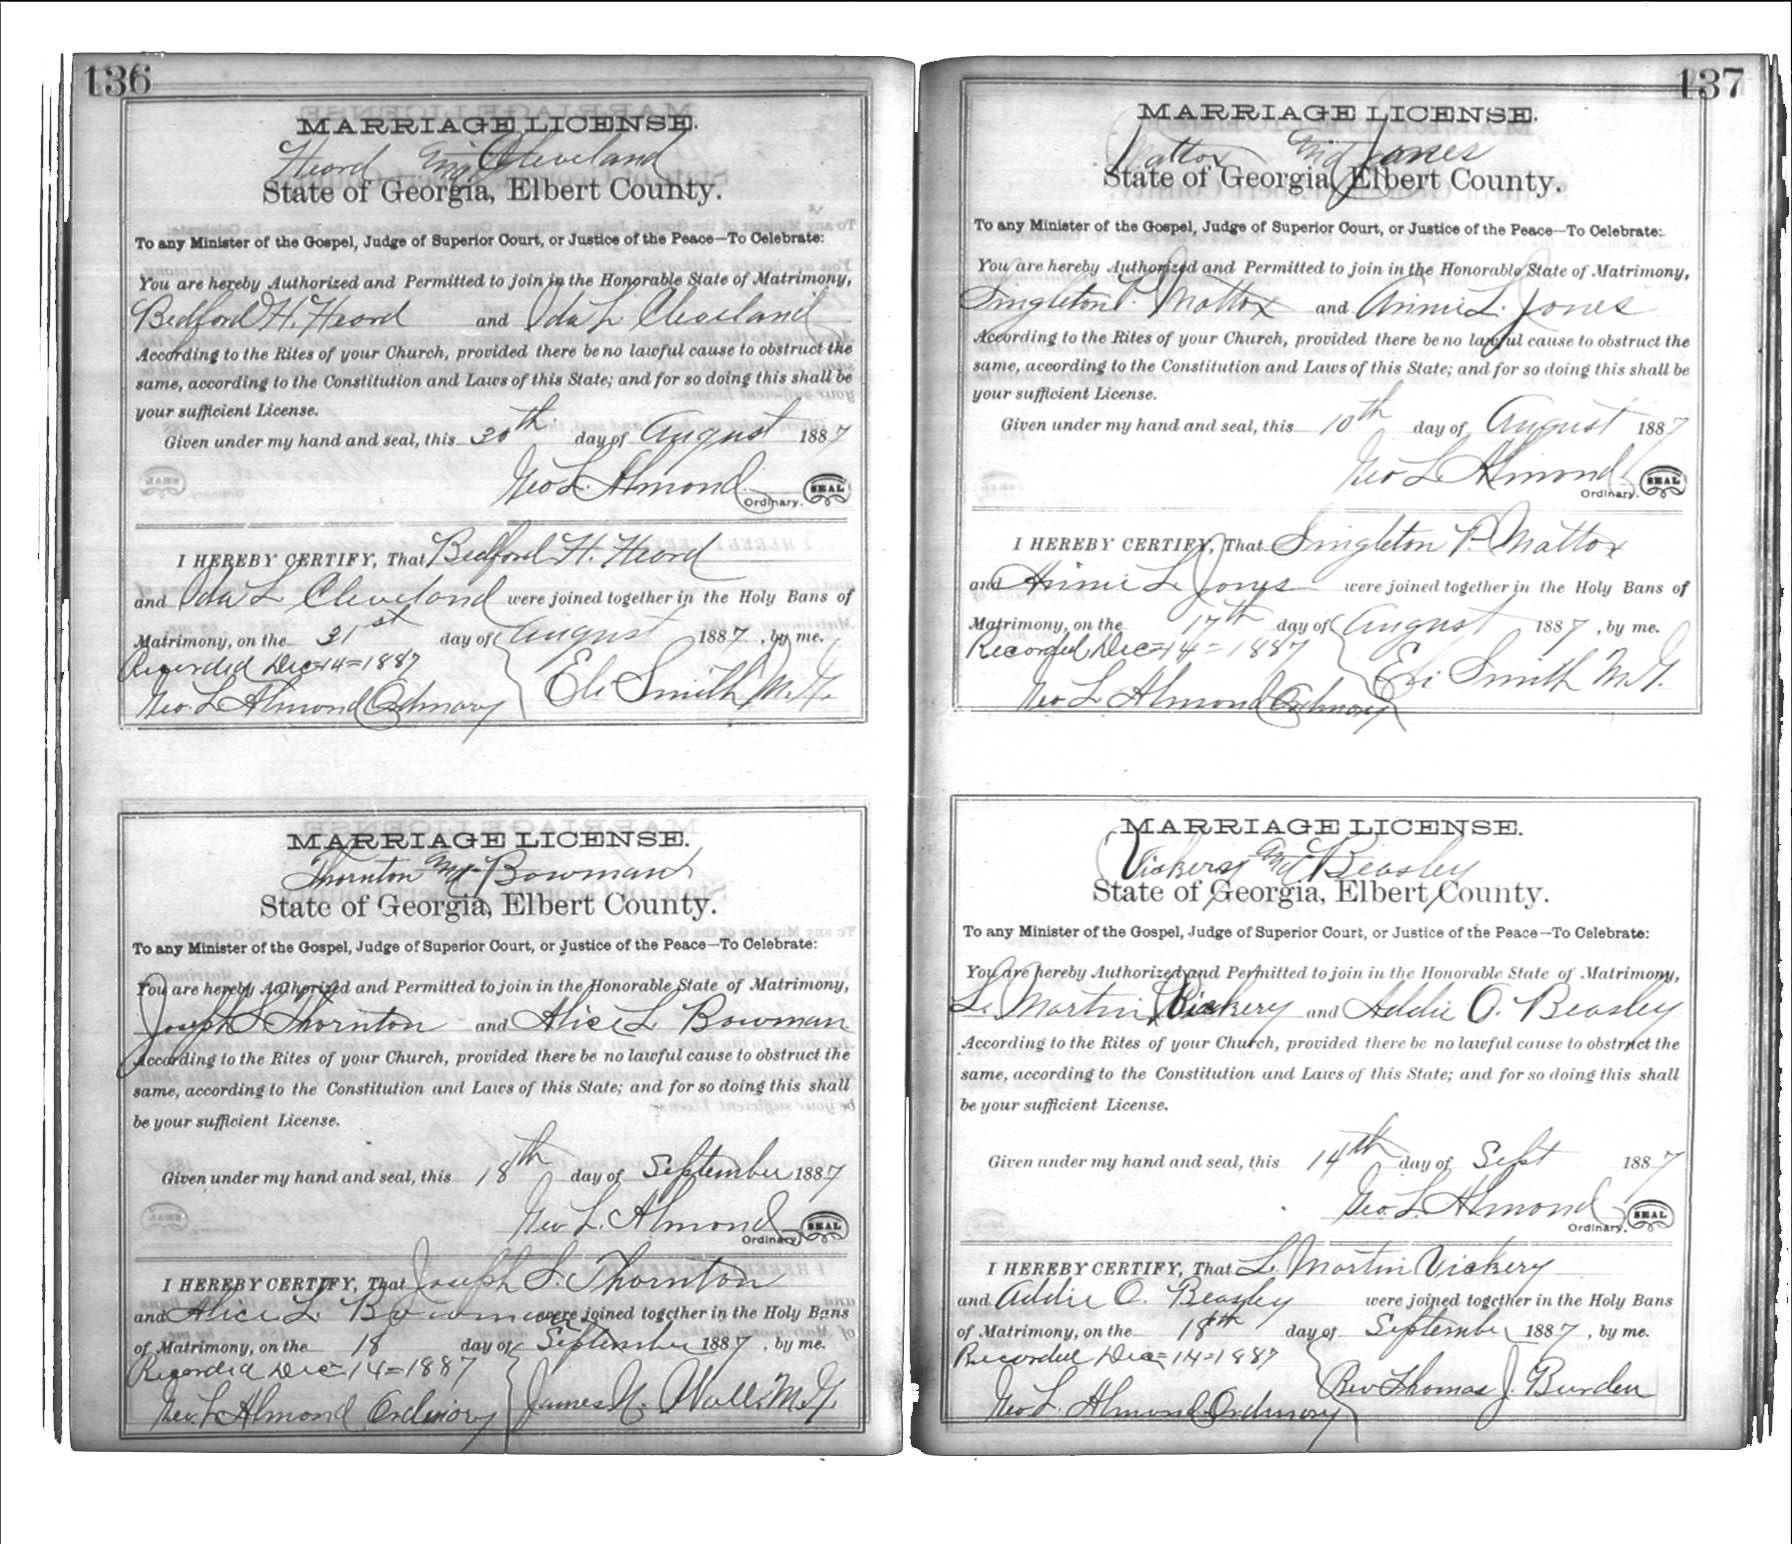 136
MARRIAGE LICENSE.
Heard and Cleveland
State of Georgia, Elbert County.
To any Minister of the Gospel, Judge of Superior Court, or Justice of the Peace—To Celebrate:
You are hereby Authorized and Permitted to join in the Honorable State of Matrimony,
Bedford H. Heard and Ida L Cleveland
According to the Rites of your Church, provided there be no lawful cause to obstruct the
same, according to the Constitution and Laws of this State; and for so doing this shall be
your sufficient License.
Given under my hand and seal, this 30th day of August 1887
Geo L. Almond
Ordinary. SEAL
I HEREBY CERTIFY, That Bedford H. Heard
and Ida L Cleveland were joined together in the Holy Bans of
Matrimony, on the 31st day of August 1887, by me.
Recorded Dec=14=1887
Geo. L Almond Ordinary Eli Smith M.G.
MARRIAGE LICENSE.
Thornton and Bowman
State of Georgia, Elbert County.
To any Minister of the Gospel, Judge of Superior Court, or Justice of the Peace—To Celebrate:
You are hereby Authorized and Permitted to join in the Honorable State of Matrimony,
Joseph S. Thornton and Alice L Bowman
According to the Rites of your Church, provided there be no lawful cause to obstruct the
same, according to the Constitution and Laws of this State; and for so doing this shall
be your sufficient License.
Given under my hand and seal, this 18th day of September 1887
Geo. L. Almond
Ordinary. SEAL
I HEREBY CERTIFY, That Joseph S. Thornton
and Alice L. Bowman were joined together in the Holy Bans
of Matrimony, on the 18 day of September 1887, by me.
Recorded Dec=14=1887
Geo. L Almond Ordinary James N. Wall M.G.
137
MARRIAGE LICENSE.
Mattox and Jones
State of Georgia, Elbert County.
To any Minister of the Gospel, Judge of Superior Court, or Justice of the Peace—To Celebrate:
You are hereby Authorized and Permitted to join in the Honorable State of Matrimony,
Singleton P. Mattox and Annie L. Jones
According to the Rites of your Church, provided there be no lawful cause to obstruct the
same, according to the Constitution and Laws of this State; and for so doing this shall be
your sufficient License.
Given under my hand and seal, this 10th day of August 1887
Geo L Almond
Ordinary. SEAL
I HEREBY CERTIFY, That Singleton P. Mattox
and Annie L Jones were joined together in the Holy Bans of
Matrimony, on the 17th day of August 1887, by me.
Recorded Dec=14=1887
Geo L Almond Ordinary Eli Smith M.G.
MARRIAGE LICENSE.
Vickery and Beasley
State of Georgia, Elbert County.
To any Minister of the Gospel, Judge of Superior Court, or Justice of the Peace—To Celebrate:
You are hereby Authorized and Permitted to join in the Honorable State of Matrimony,
L. Martin Vickery and Addie O. Beasley
According to the Rites of your Church, provided there be no lawful cause to obstruct the
same, according to the Constitution and Laws of this State; and for so doing this shall
be your sufficient License.
Given under my hand and seal, this 14th day of Sept 1887
Geo. L. Almond
Ordinary. SEAL
I HEREBY CERTIFY, That L. Martin Vickery
and Addie O. Beasley were joined together in the Holy Bans
of Matrimony, on the 18th day of September 1887, by me.
Recorded Dec=14=1887
Geo L. Almond Ordinary Rev Thomas J. Burden